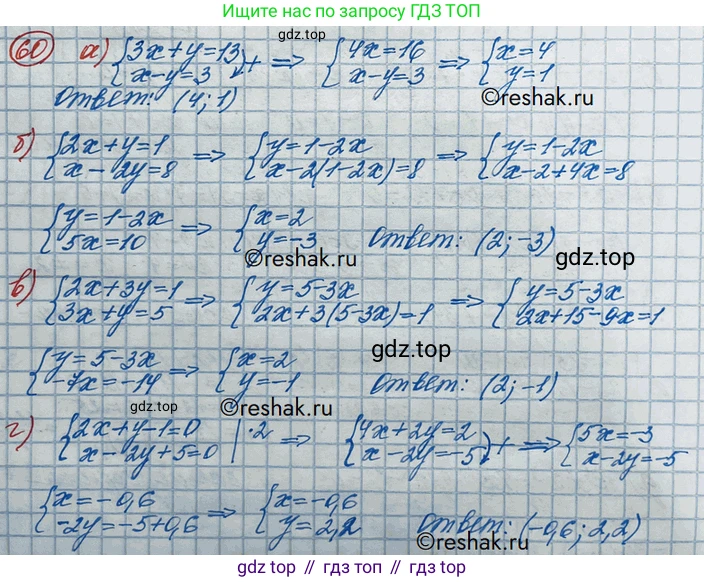 Ищите нас по запросу ГДЗ ТОП
gdz.top
60 а) {3x+y=13 x-y=3 + ⇒ {4x=16 x-y=3 ⇒ {x=4 y=1
Ответ: (4; 1)
©reshak.ru
б) {2x+y=1 x-2y=8 ⇒ {y=1-2x x-2(1-2x)=8 ⇒ {y=1-2x x-2+4x=8
{y=1-2x 5x=10 ⇒ {x=2 y=-3 Ответ: (2; -3)
©reshak.ru
gdz.top
в) {2x+3y=1 3x+y=5 ⇒ {y=5-3x 2x+3(5-3x)=1 ⇒ {y=5-3x 2x+15-9x=1
gdz.top
{y=5-3x -7x=-14 ⇒ {x=2 y=-1 Ответ: (2; -1)
gdz.top
©reshak.ru
г) {2x+y-1=0 x-2y+5=0 |·2 ⇒ {4x+2y=2 x-2y=-5 + ⇒ {5x=-3 x-2y=-5
{x=-0,6 -2y=-5+0,6 ⇒ {x=-0,6 y=2,2 Ответ: (-0,6; 2,2)
©reshak.ru
gdz.top // gdz.top // gdz.top